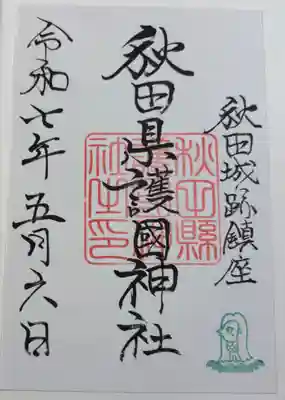 秋田城跡鎮座
秋田県護國神社
秋田縣護國神社之印
令和七年五月六日